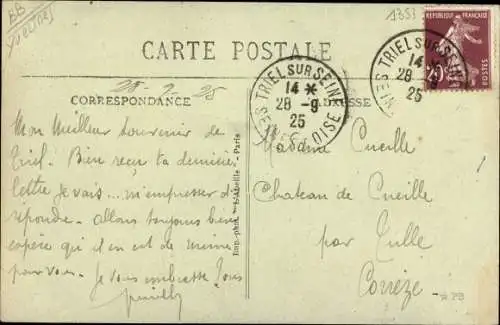 BB
(YVELINES)
1353
REPUBLIQUE FRANÇAISE
CARTE POSTALE
28-9-25
TRIEL SUR SEINE
14 *
28 -9
25
SEINE ET OISE
TRIEL SUR SEINE
14 *
28
25
SEINE
CORRESPONDANCE
ADRESSE
Mon Meilleur Souvenir de
Triel. Bien reçu ta dernière
lettre je vais ... m'empresser d'y
répondre. Allons toujours bien
espère qu'il en est de même
pour vous. Je vous embrasse Tous
Madame Cueille
Chateau de Cueille
par Tulle
Corrèze
Imp.-phot. Paris